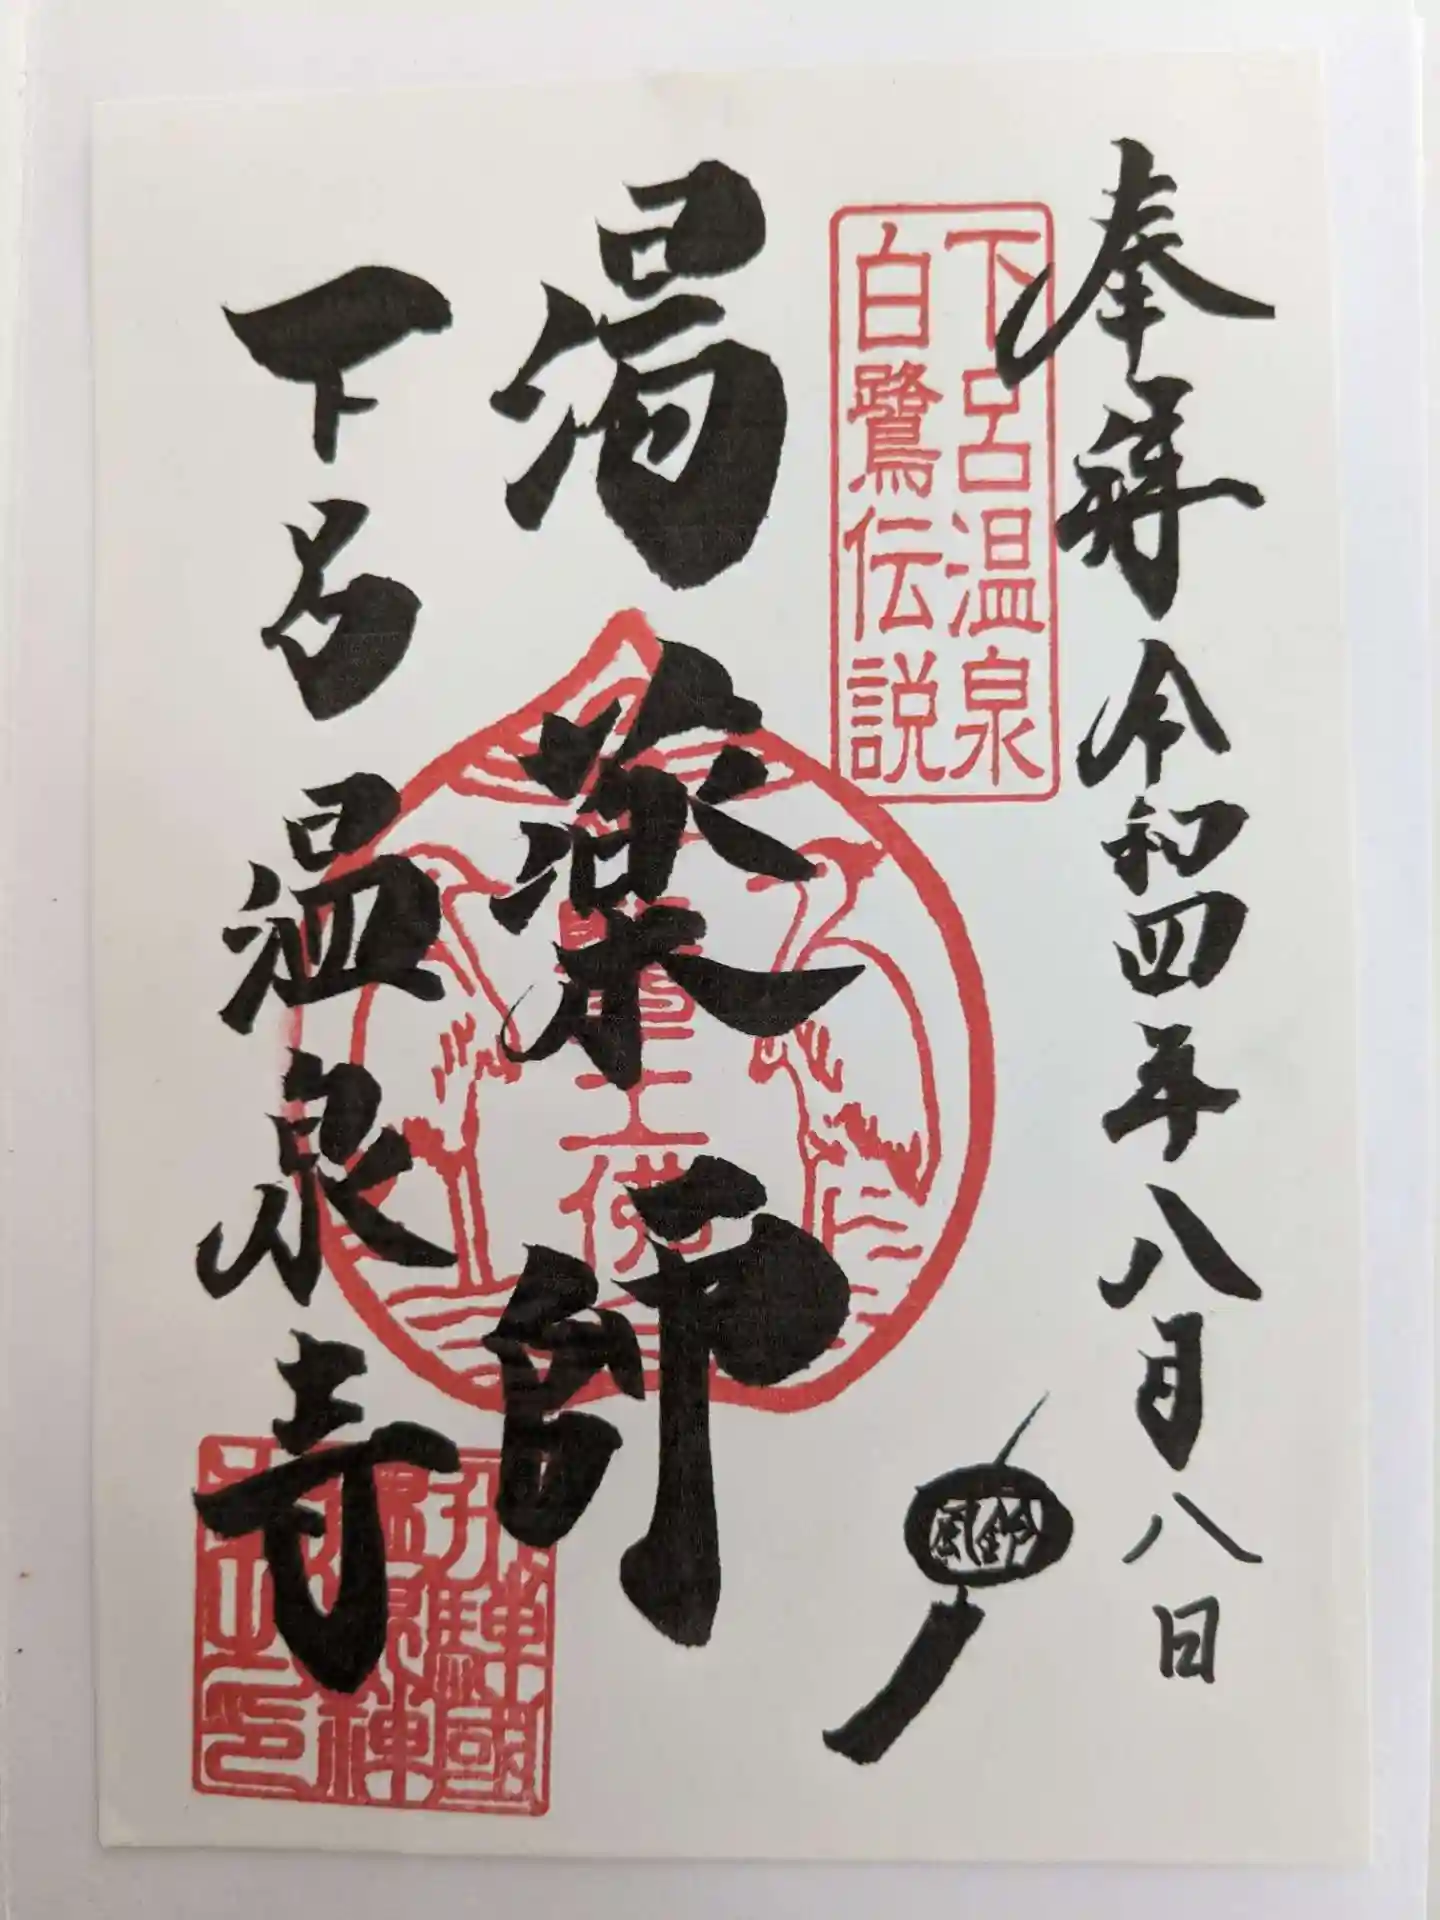 奉拝 令和四年八月八日
下呂温泉
白鷺伝説
湯薬師
風鈴
下呂温泉寺